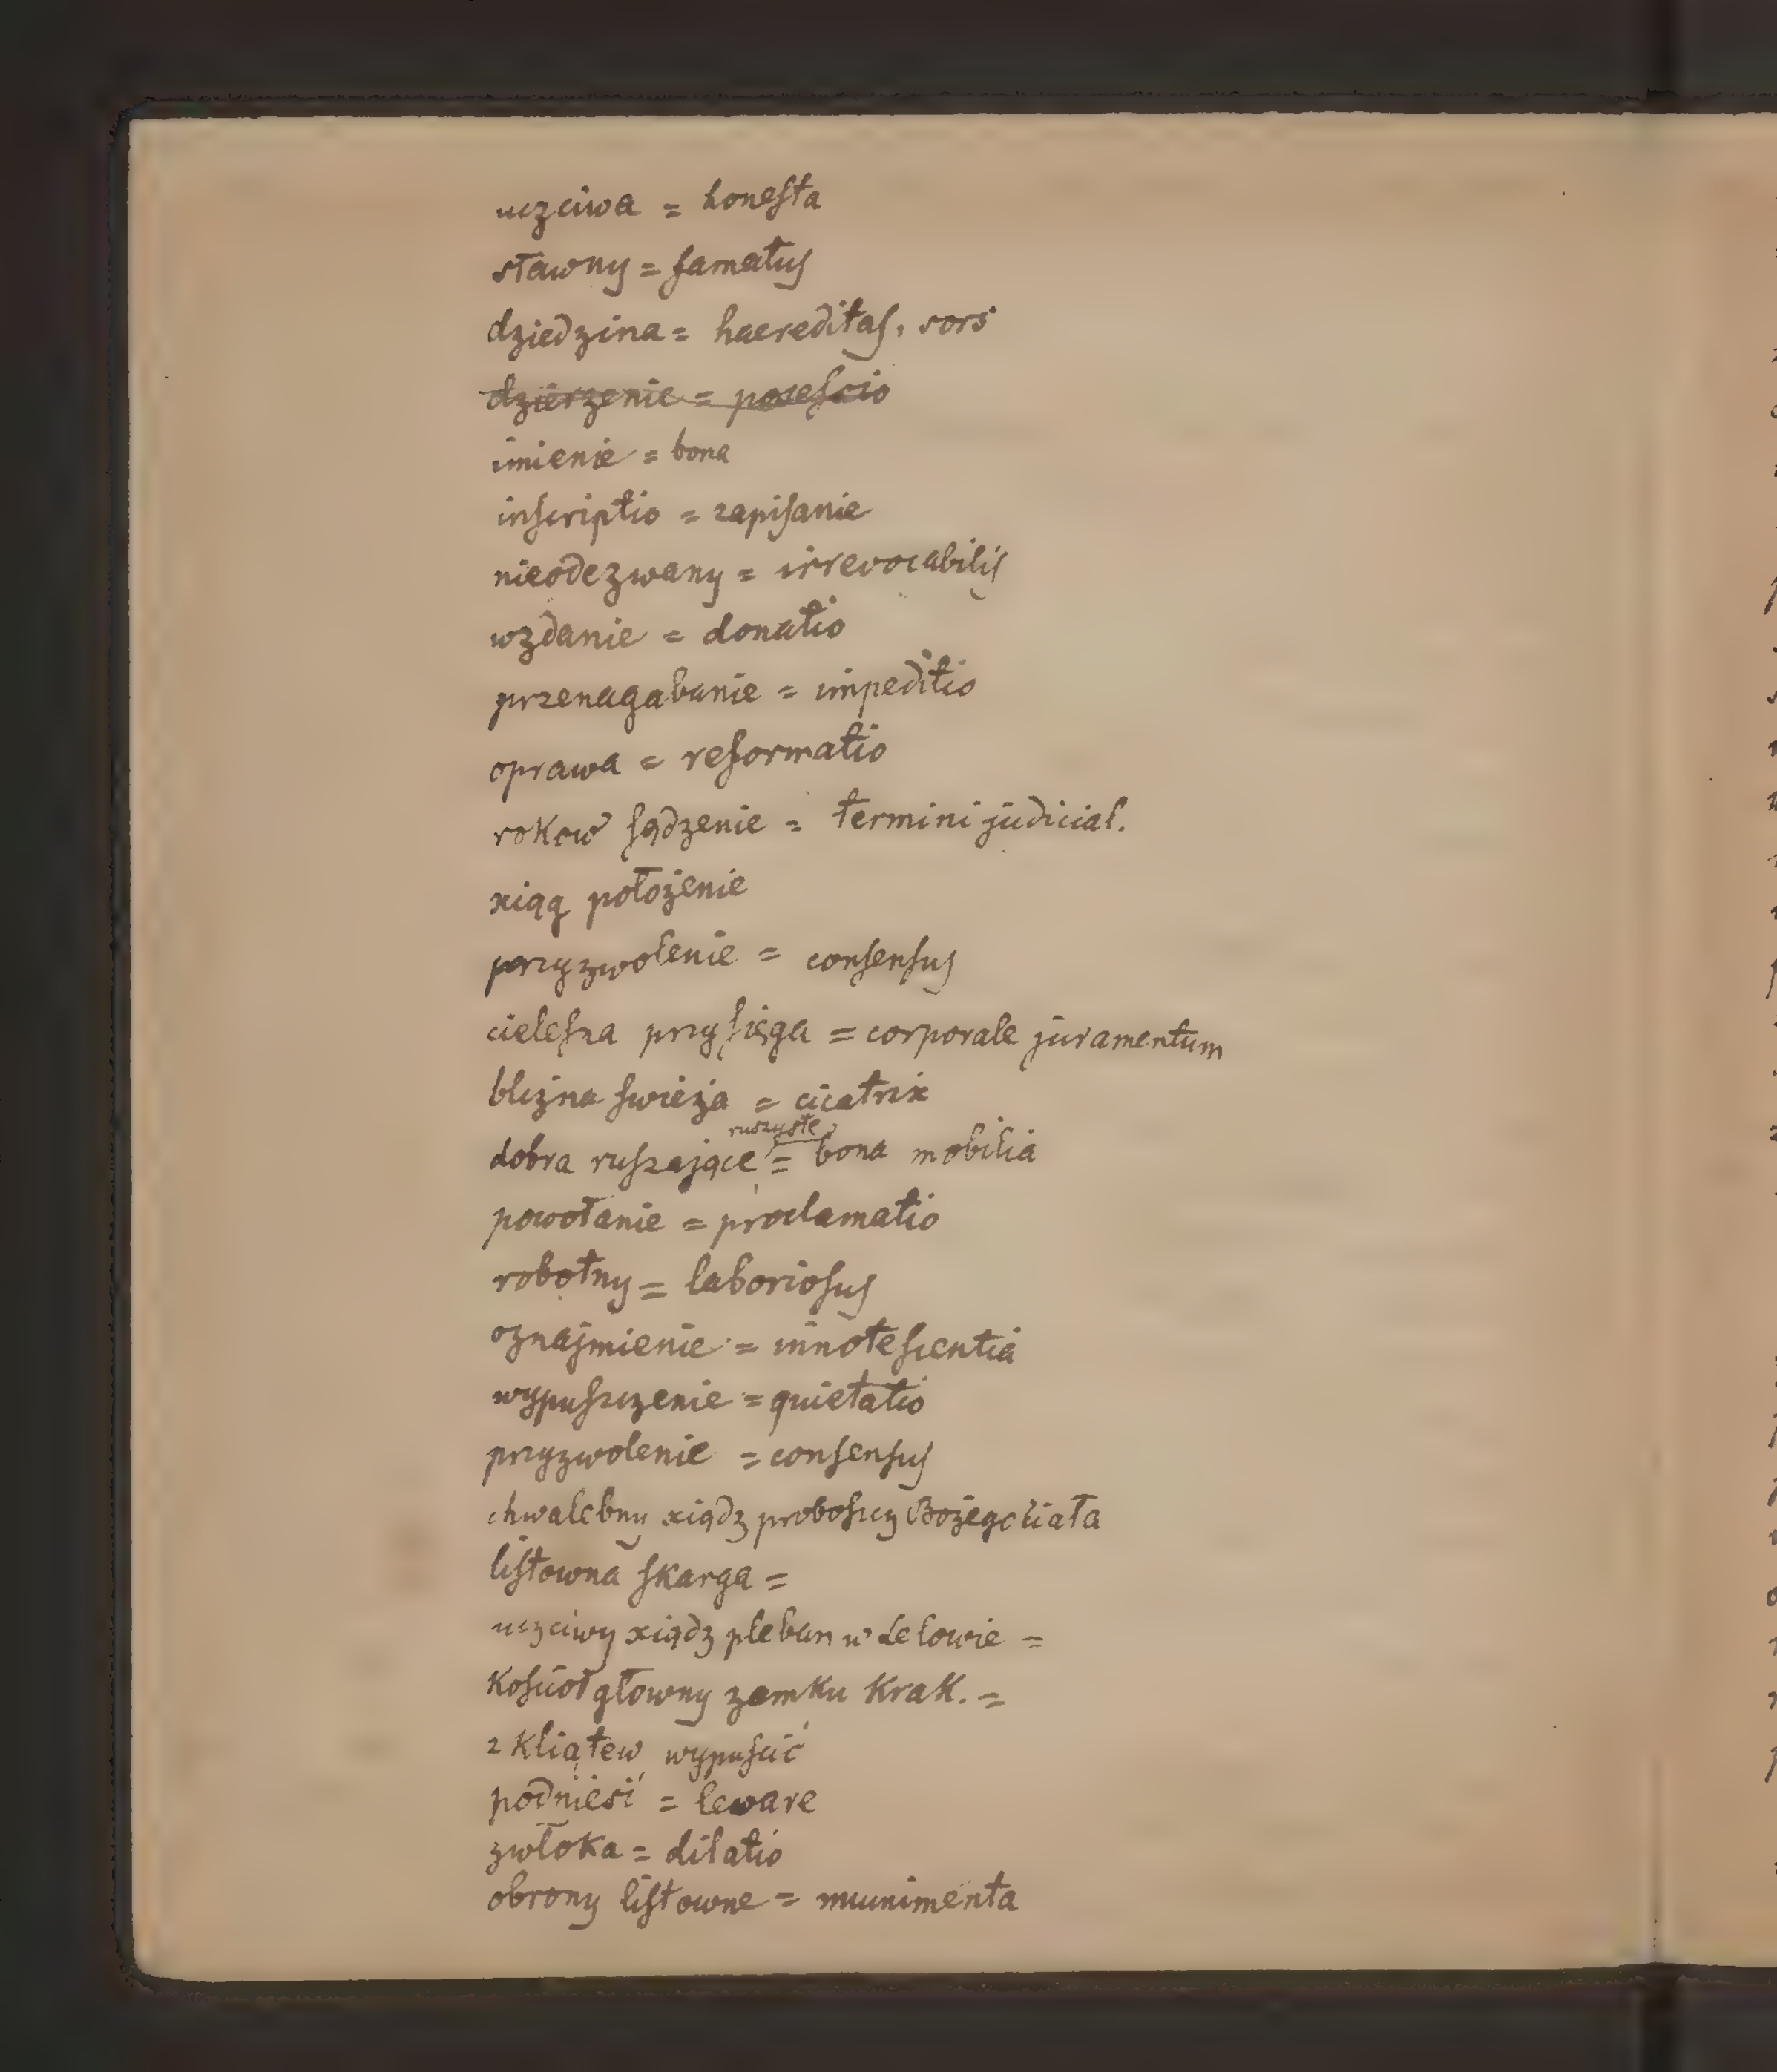 uczciwa = honesta
sławny = famatus
dziedzina = haereditas, sors
dzierzenie = posescio
imienie = bona
inscriptio = zapisanie
nieodezwany = irrevocabilis
wzdanie = donatio
przenagabanie = impeditio
oprawa = reformatio
rokow sądzenie = termini judicial.
xiąg położenie
przyzwolenie = consensus
cielesna przysięga = corporale juramentum
blizna swieża = cicatrix
ruszyste
dobra ruszające = bona mobilia
powołanie = proclamatio
robotny = laboriosus
oznajmienie = innotescentia
wypuszczenie = quietatio
przyzwolenie = consensus
chwalebny xiądz proboszcz Bożego ciała
listowna skarga =
uczciwy xiądz pleban w Lelowie =
Kościoł głowny zamku Krak. =
z Kliątew wypuścić
podnieść = leware
zwłoka = dilatio
obrony listowne = munimenta